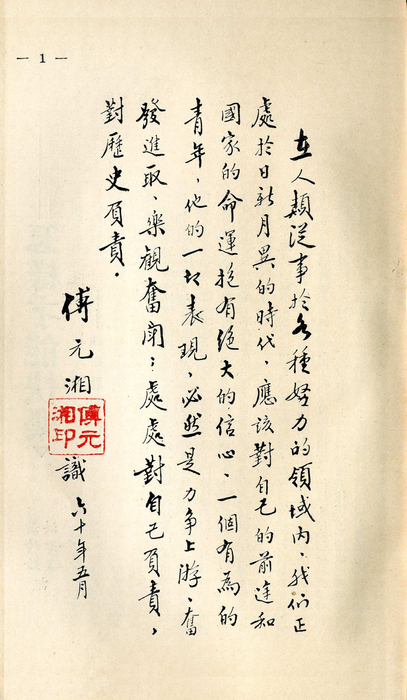 — 1 —
在人類從事於各種努力的領域內、我們正
處於日新月異的時代、應該對自己的前途和
國家的命運抱有絕大的信心、一個有為的
青年、他的一切表現、必然是力争上游、奮
發進取、樂觀奮鬥；處處對自己負責，
對歷史負責。
傅元湘
傅元湘印
識 六十年五月